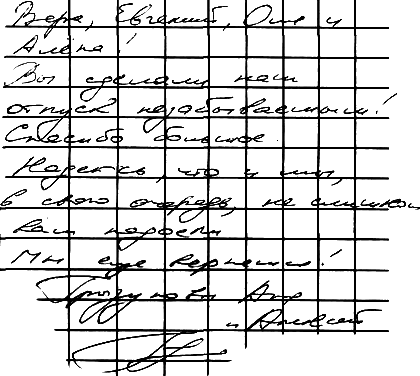 Вера, Евгений, Оля и
Алёна!
Вы сделали наш
отпуск незабываемым!
Спасибо большое.
Надеюсь, что и мы,
в свою очередь, не слишком
Вам надоели
Мы еще вернемся!
и Алексей